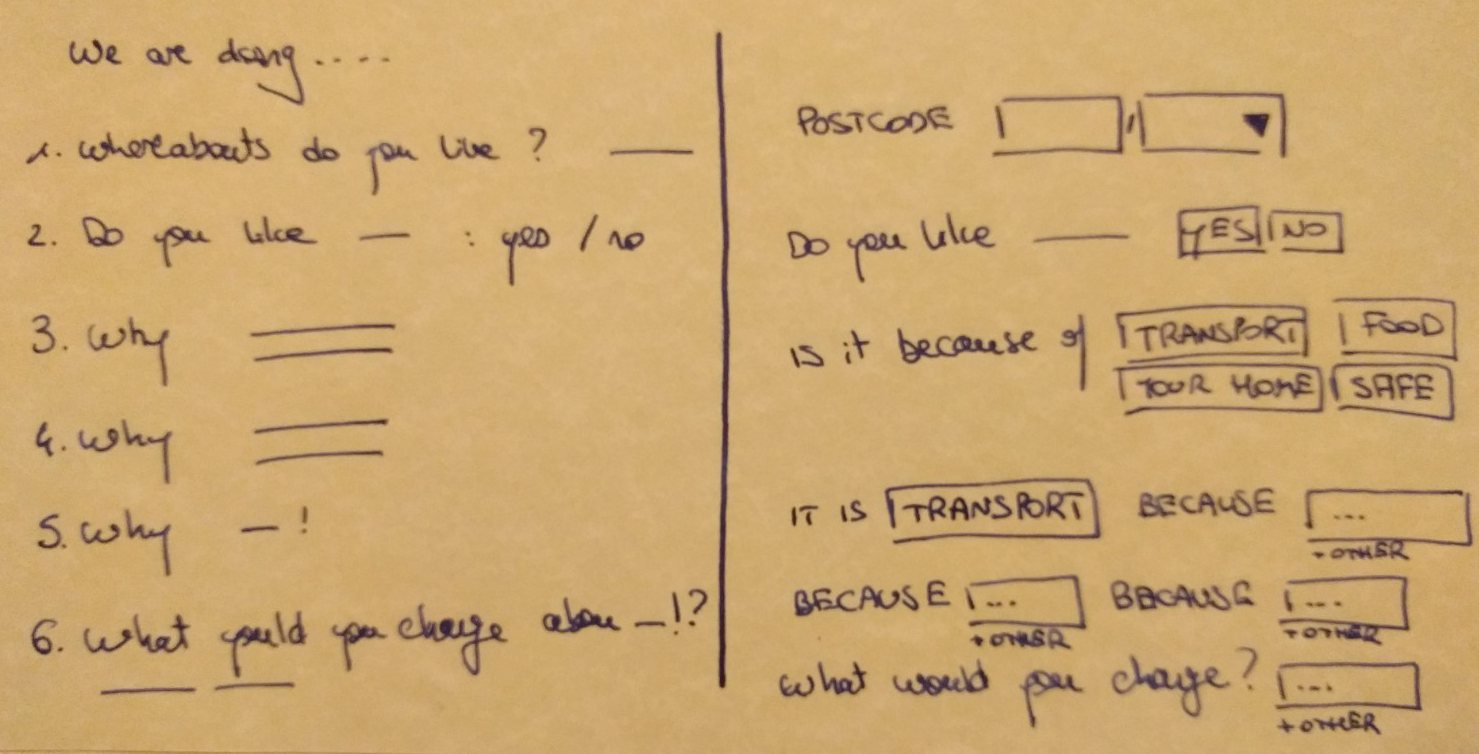 We are doing....
1. whereabouts do you live ? ___
2. Do you like — : yes / no
3. why
4. why
5. why — !
6. what would you change about — !?
POSTCODE
Do you like —— YES NO
is it because of TRANSPORT FOOD
YOUR HOME SAFE
IT IS TRANSPORT BECAUSE ...
+ OTHER
BECAUSE ... BECAUSE ...
+ OTHER + OTHER
what would you change? ...
+ OTHER